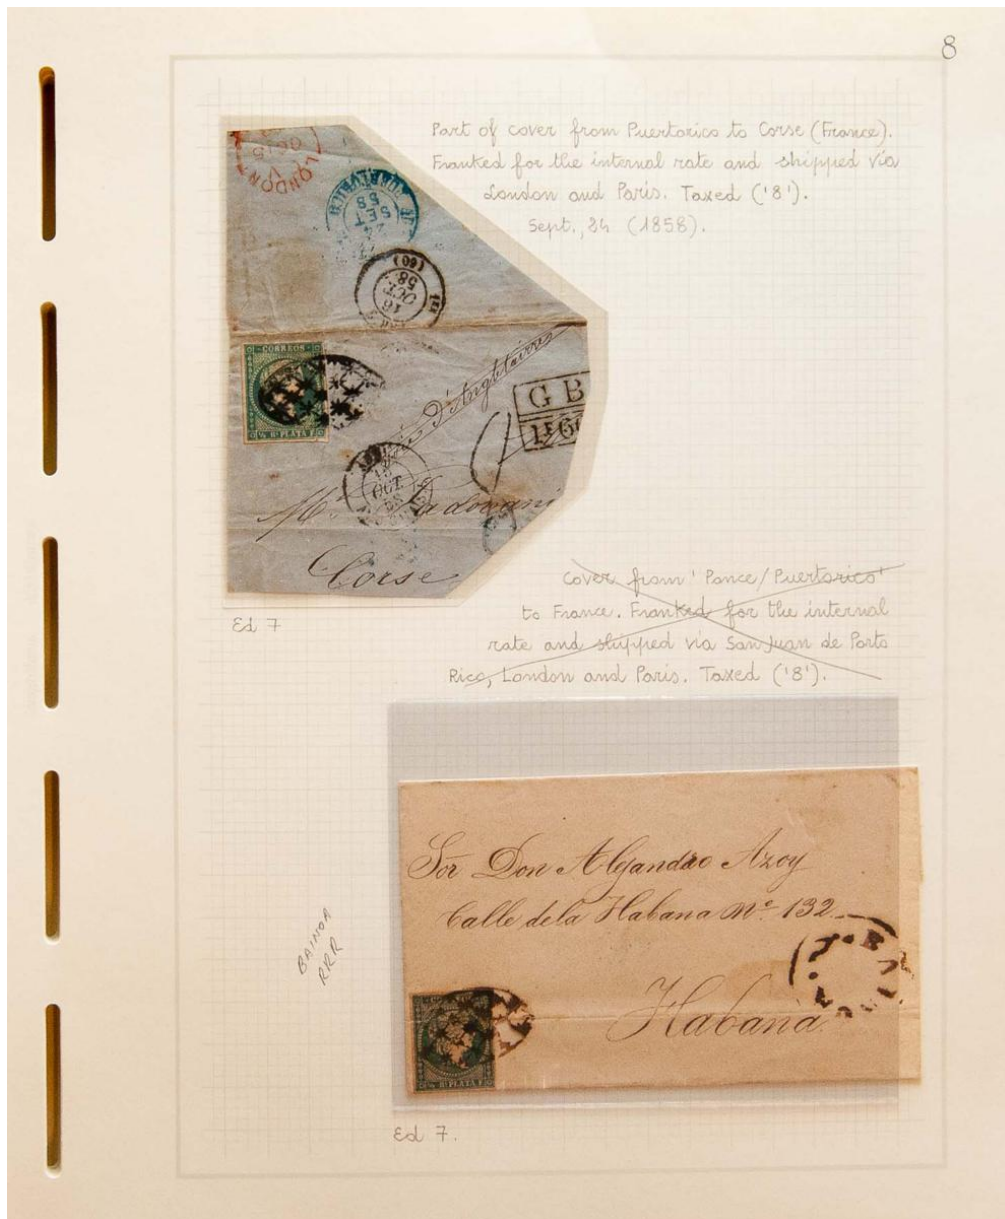 8
Part of cover from Puertorico to Corse (France).
Franked for the internal rate and shipped via
London and Paris. Taxed ('8').
Sept., 24 (1858).
LONDON
SET
58
(60)
16
OCT.
58
CORREOS
½ Rl PLATA F
d'Angleterre
G B
1F 60
OCT
58
Mr. Padovani
Corse
Ed 7
Cover from 'Ponce/Puertorico'
to France. Franked for the internal
rate and shipped via San Juan de Porto
Rico, London and Paris. Taxed ('8').
Sor Don Alejandro Azoy
Calle de la Habana No. 132
Habana
BAINOA
RRR
½ Rl PLATA F
Ed 7.